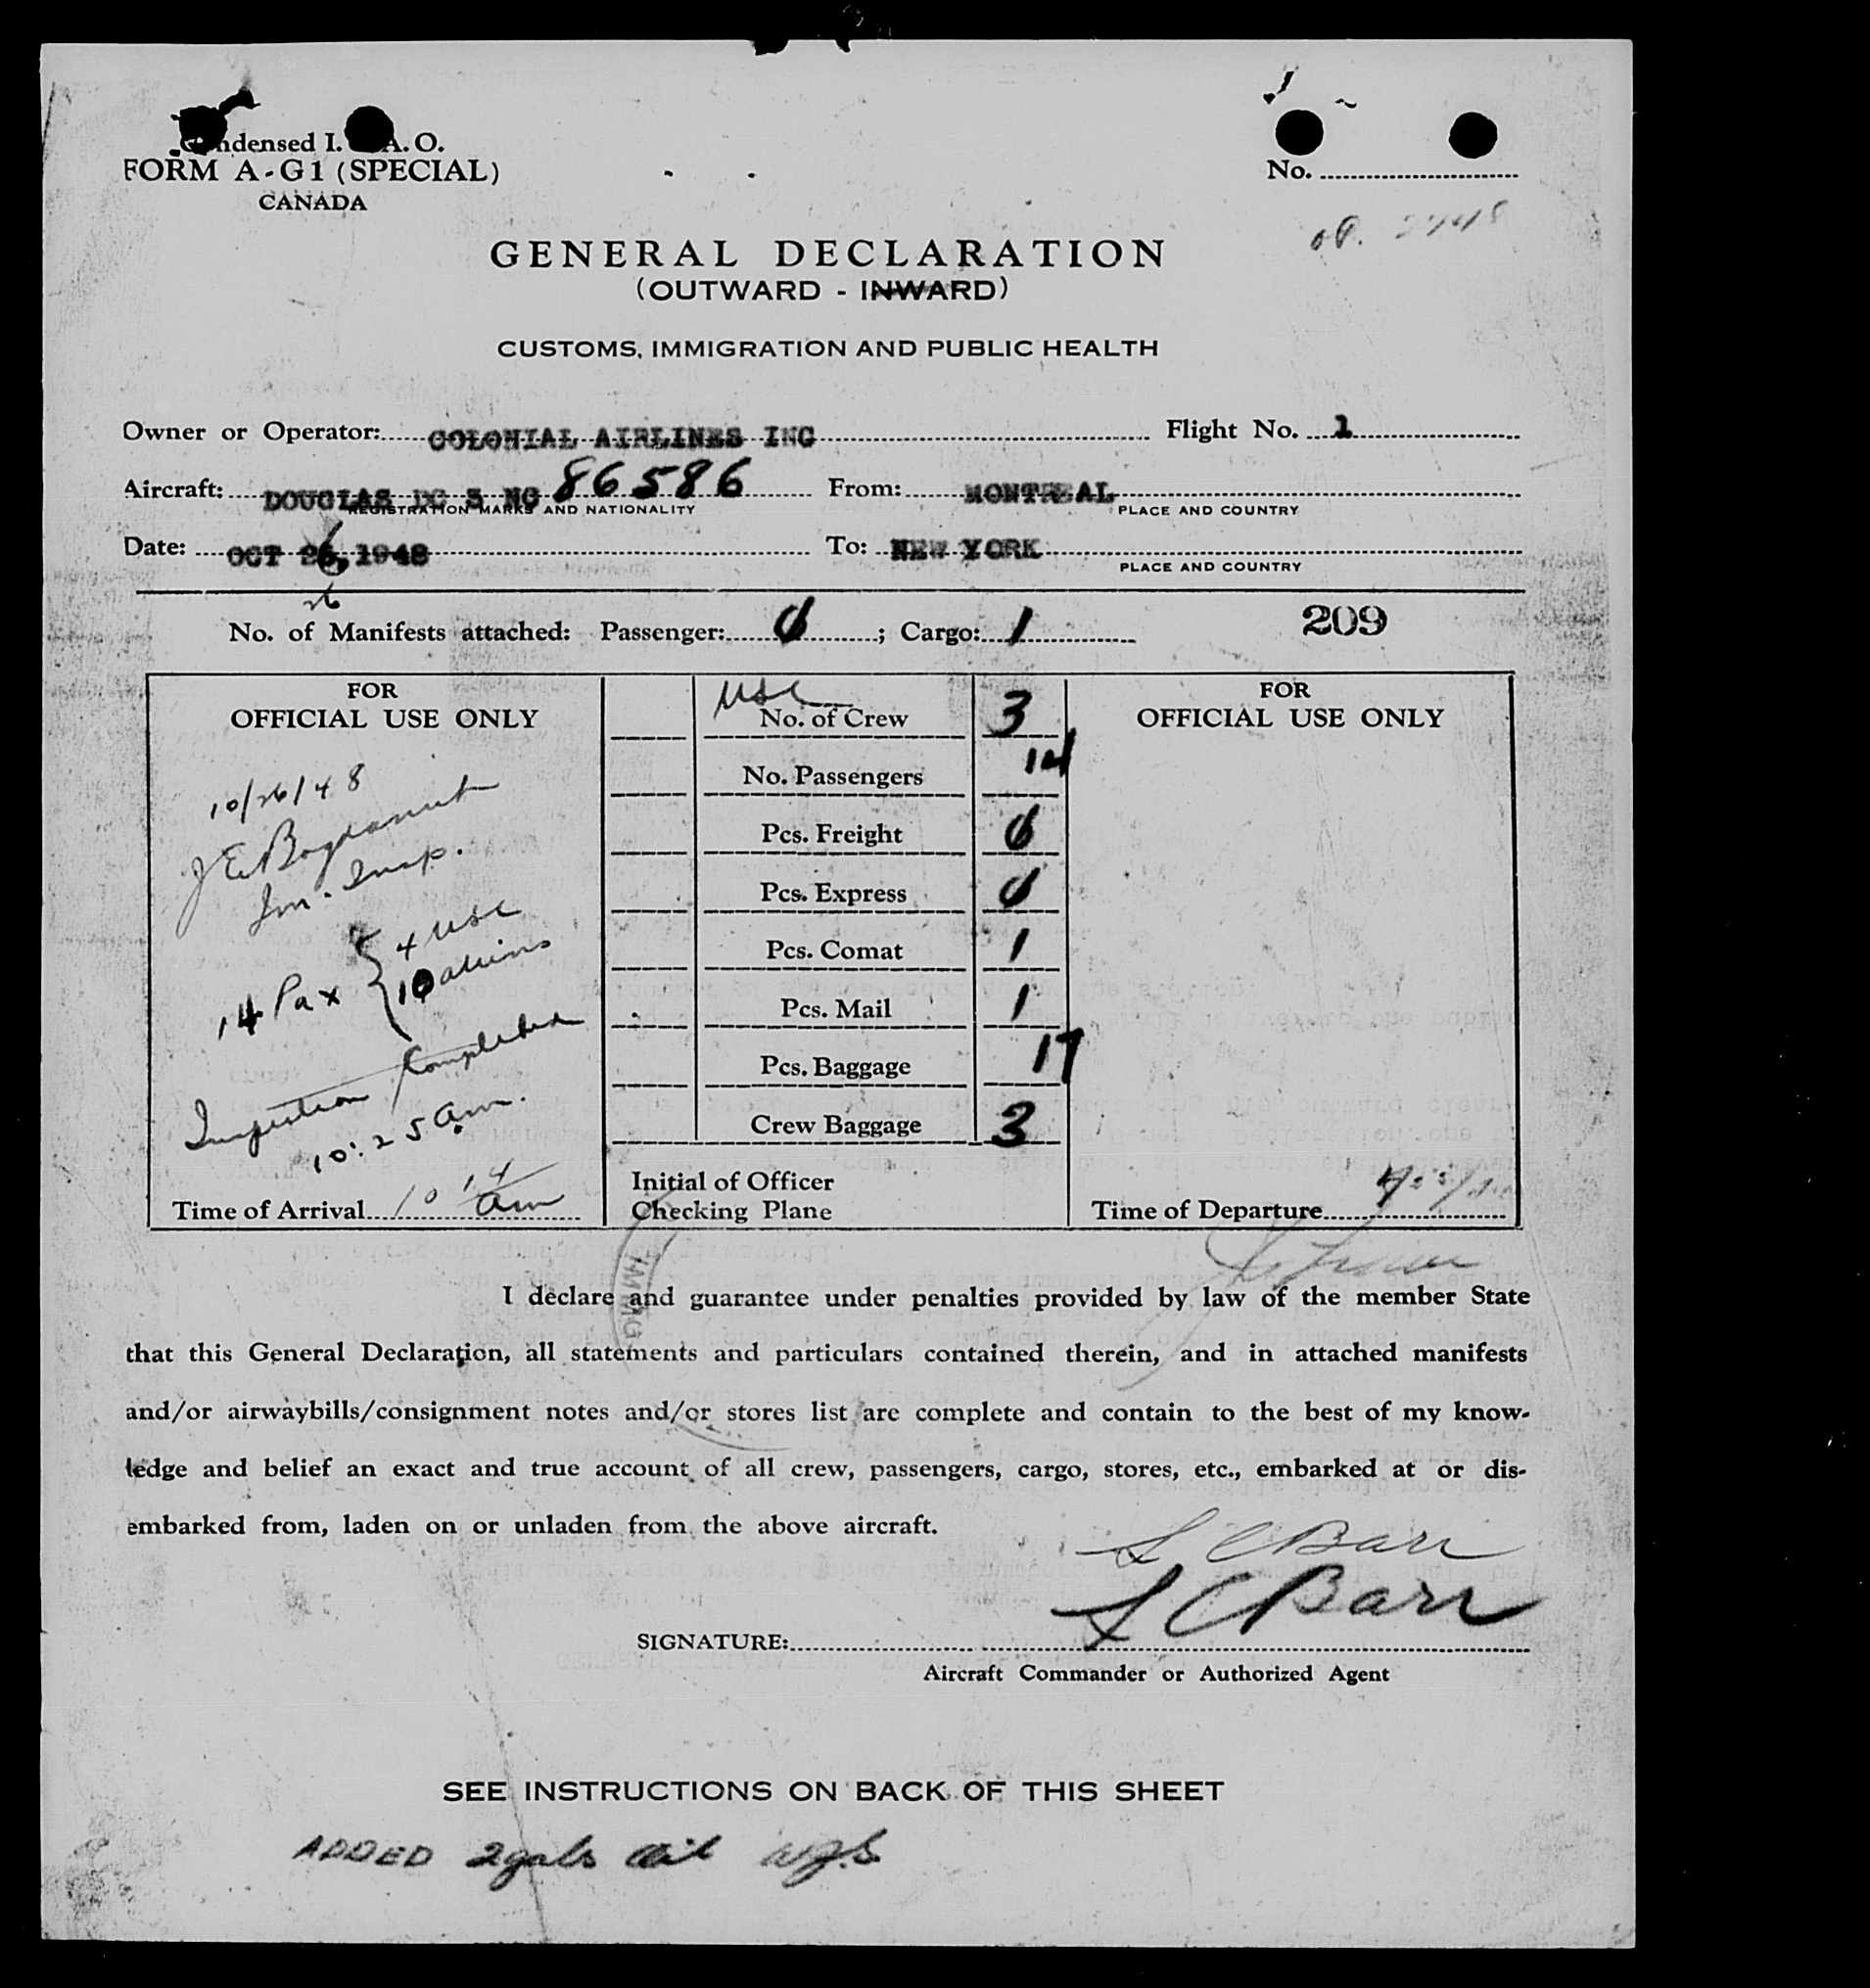 Condensed I. A. O.
FORM A-G1 (SPECIAL)
CANADA
No.
GENERAL DECLARATION
(OUTWARD - INWARD)
CUSTOMS, IMMIGRATION AND PUBLIC HEALTH
Owner or Operator: COLONIAL AIRLINES INC Flight No. 1
Aircraft: DOUGLAS DC 3 NC 86586 From: MONTREAL
REGISTRATION MARKS AND NATIONALITY PLACE AND COUNTRY
Date: OCT 26, 1948 To: NEW YORK
PLACE AND COUNTRY
26
No. of Manifests attached: Passenger: 0 ; Cargo: 1 209
FOR
OFFICIAL USE ONLY
10/26/48
Im. Insp.
14 Pax { 4 USC
10 aliens
Inspection Completed
10:25 am.
Time of Arrival 10 14 am
USC
No. of Crew 3
No. Passengers 14
Pcs. Freight 0
Pcs. Express 0
Pcs. Comat 1
Pcs. Mail 1
Pcs. Baggage 17
Crew Baggage 3
Initial of Officer
Checking Plane
FOR
OFFICIAL USE ONLY
Time of Departure
IMMIG
I declare and guarantee under penalties provided by law of the member State
that this General Declaration, all statements and particulars contained therein, and in attached manifests
and/or airwaybills/consignment notes and/or stores list are complete and contain to the best of my know-
ledge and belief an exact and true account of all crew, passengers, cargo, stores, etc., embarked at or dis-
embarked from, laden on or unladen from the above aircraft.
S C Barr
S C Barr
SIGNATURE:
Aircraft Commander or Authorized Agent
SEE INSTRUCTIONS ON BACK OF THIS SHEET
ADDED 2 gals oil